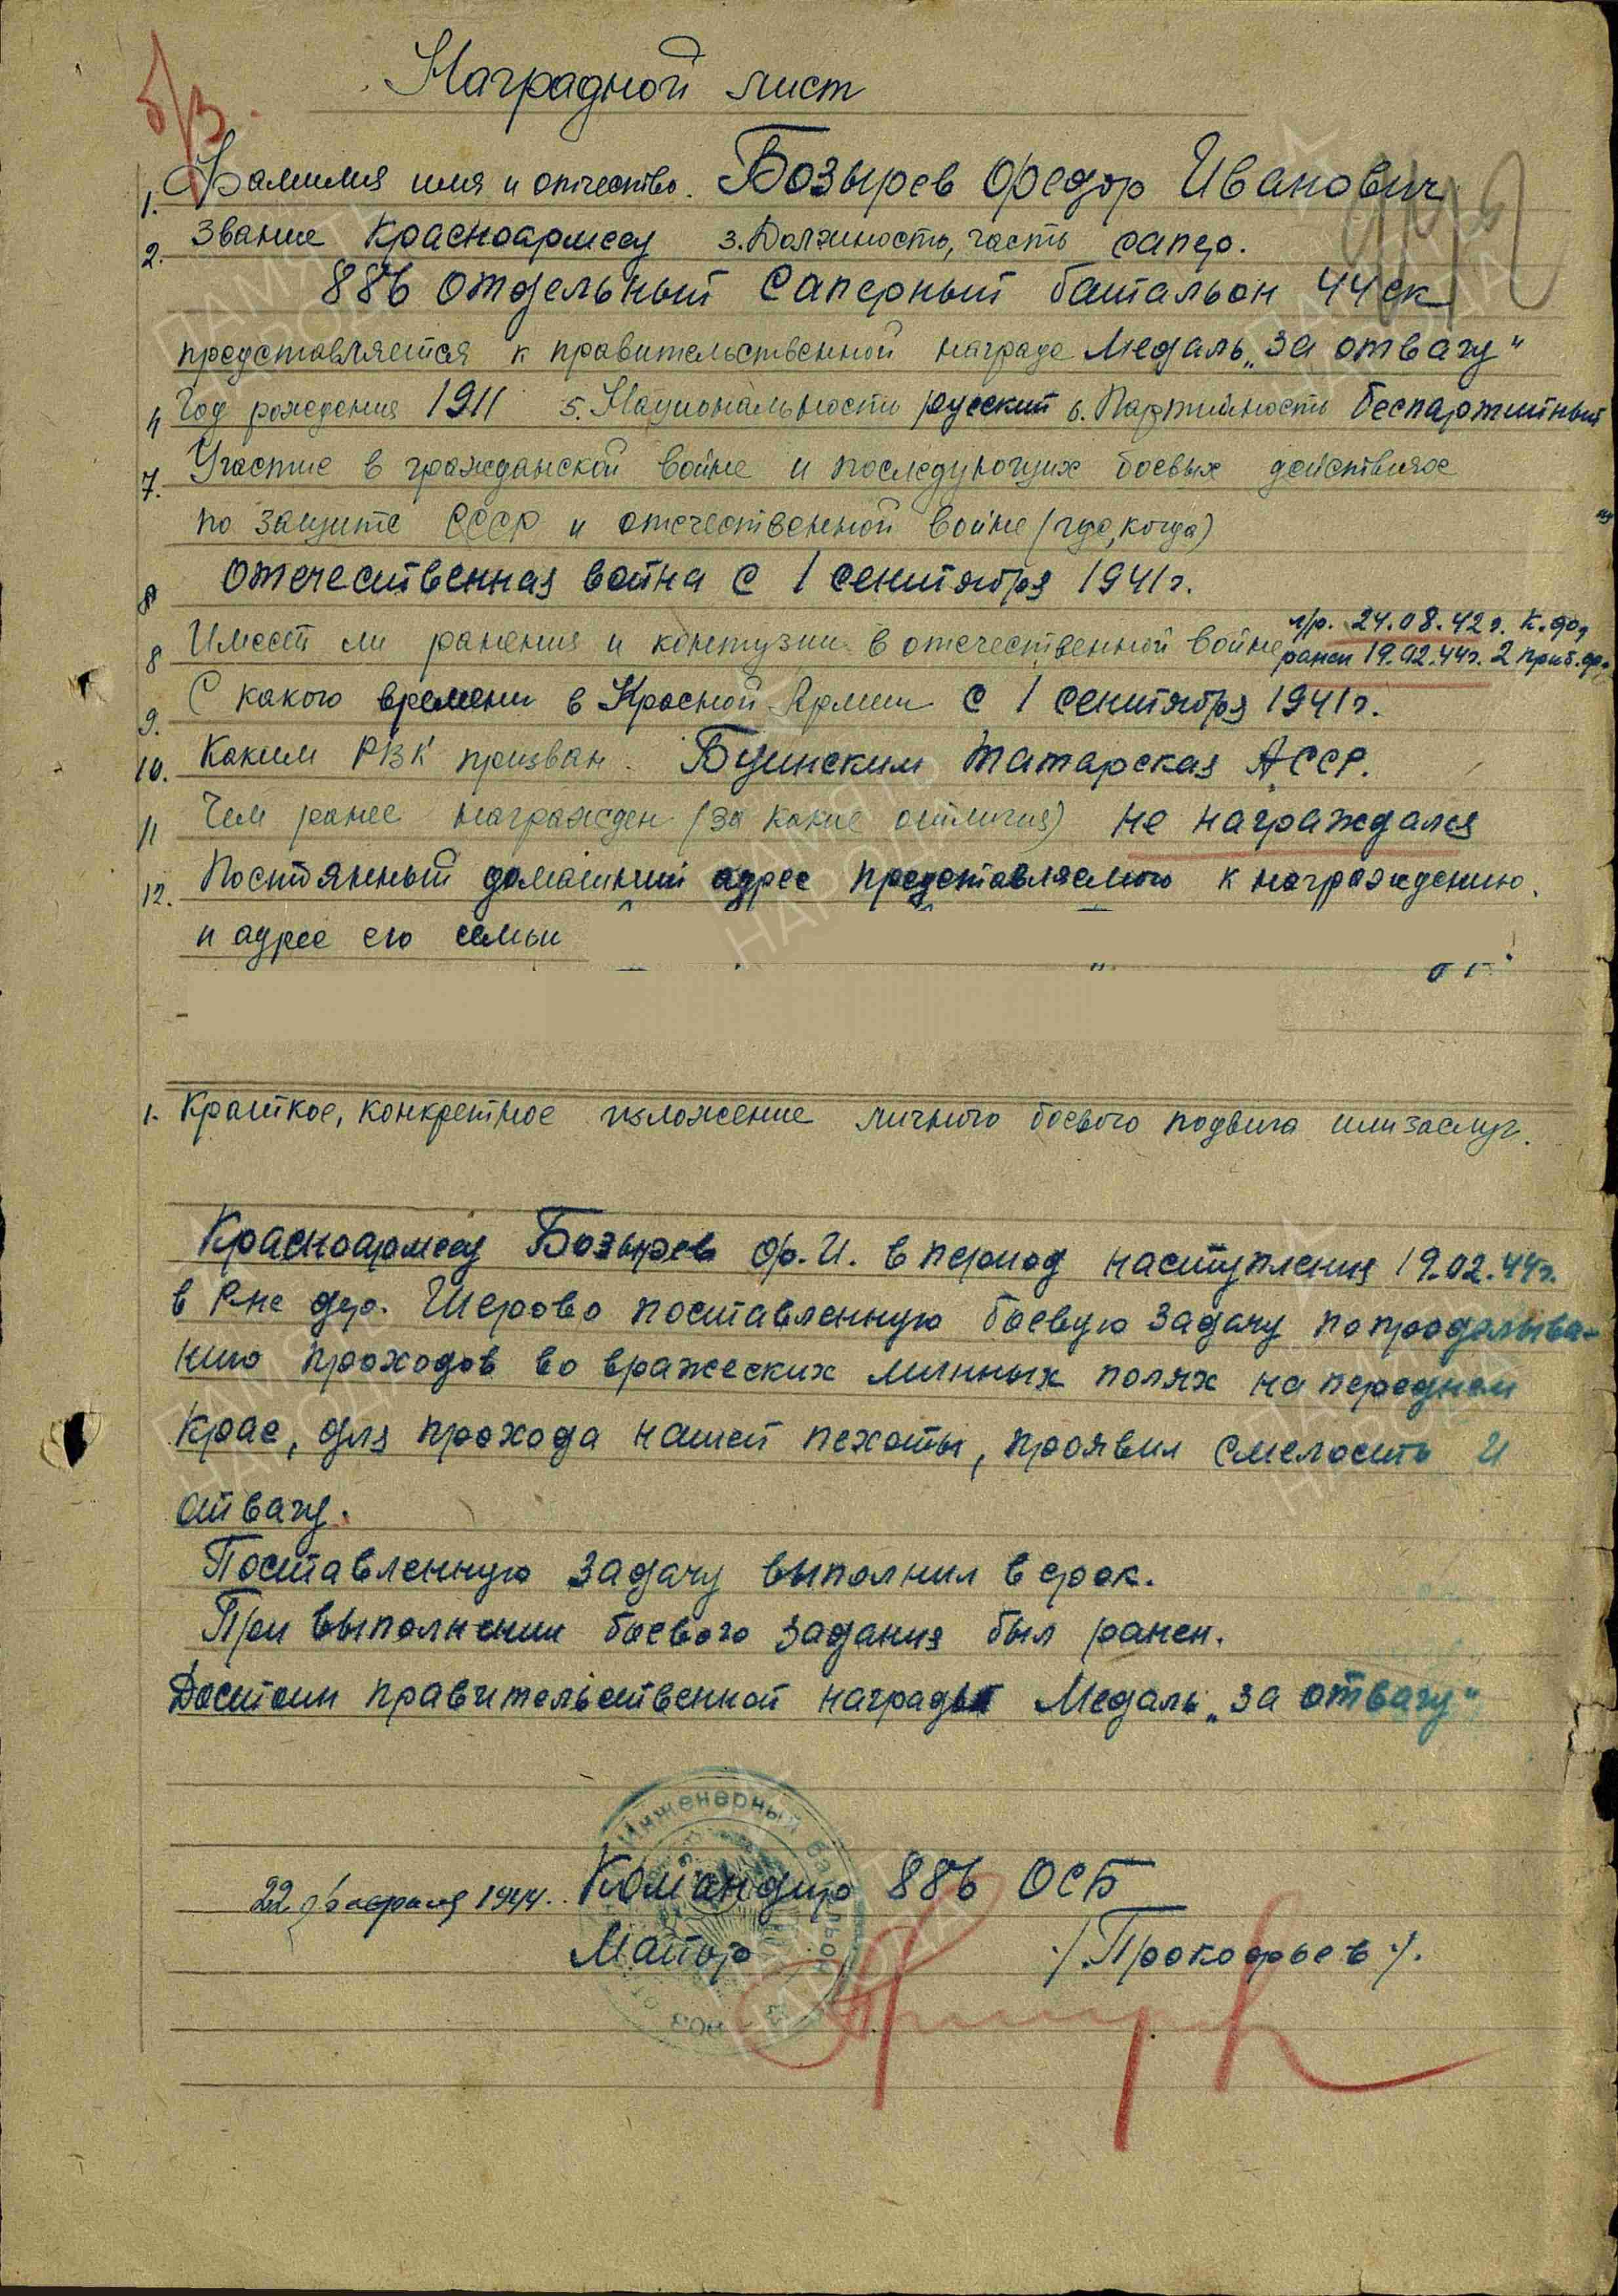 б/з.
Наградной лист
1. Фамилия имя и отчество. Бозырев Федор Иванович
2. Звание Красноармеец 3. Должность, часть сапер.
886 Отдельный Саперный батальон 44 ск
представляется к правительственной награде Медаль „За отвагу“
4 Год рождения 1911 5. Национальность русский 6. Партийность беспартийный
7. Участие в гражданской войне и последующих боевых действиях
по защите СССР и отечественной войне (где, когда)
Отечественная война с 1 сентября 1941г.
8 Имеет ли ранения и контузии в отечественной войне л/р. 24.08.42г. К.фр,
ранен 19.02.44г. 2 приб.фр.
9. С какого времени в Красной Армии с 1 сентября 1941г.
10. Каким РВК призван. Буинским Татарская АССР.
11 Чем ранее награжден (за какие отличия) не награждался
12. Постоянный домашний адрес представляемого к награждению.
и адрес его семьи
1. Краткое, конкретное изложение личного боевого подвига или заслуг.
Красноармеец Бозырев Ф.И. в период наступления 19.02.44г.
в р-не дер. Шерово поставленную боевую задачу по проделыва-
нию проходов во вражеских минных полях на переднем
крае, для прохода нашей пехоты, проявил смелость и
отвагу.
Поставленную задачу выполнил в срок.
При выполнении боевого задания был ранен.
Достоин правительственной награды Медаль „За отвагу“
Инженерный батальон
22 февраля 1944. Командир 886 ОСБ
Майор /.Прокофьев/.
ПАМЯТЬ НАРОДА